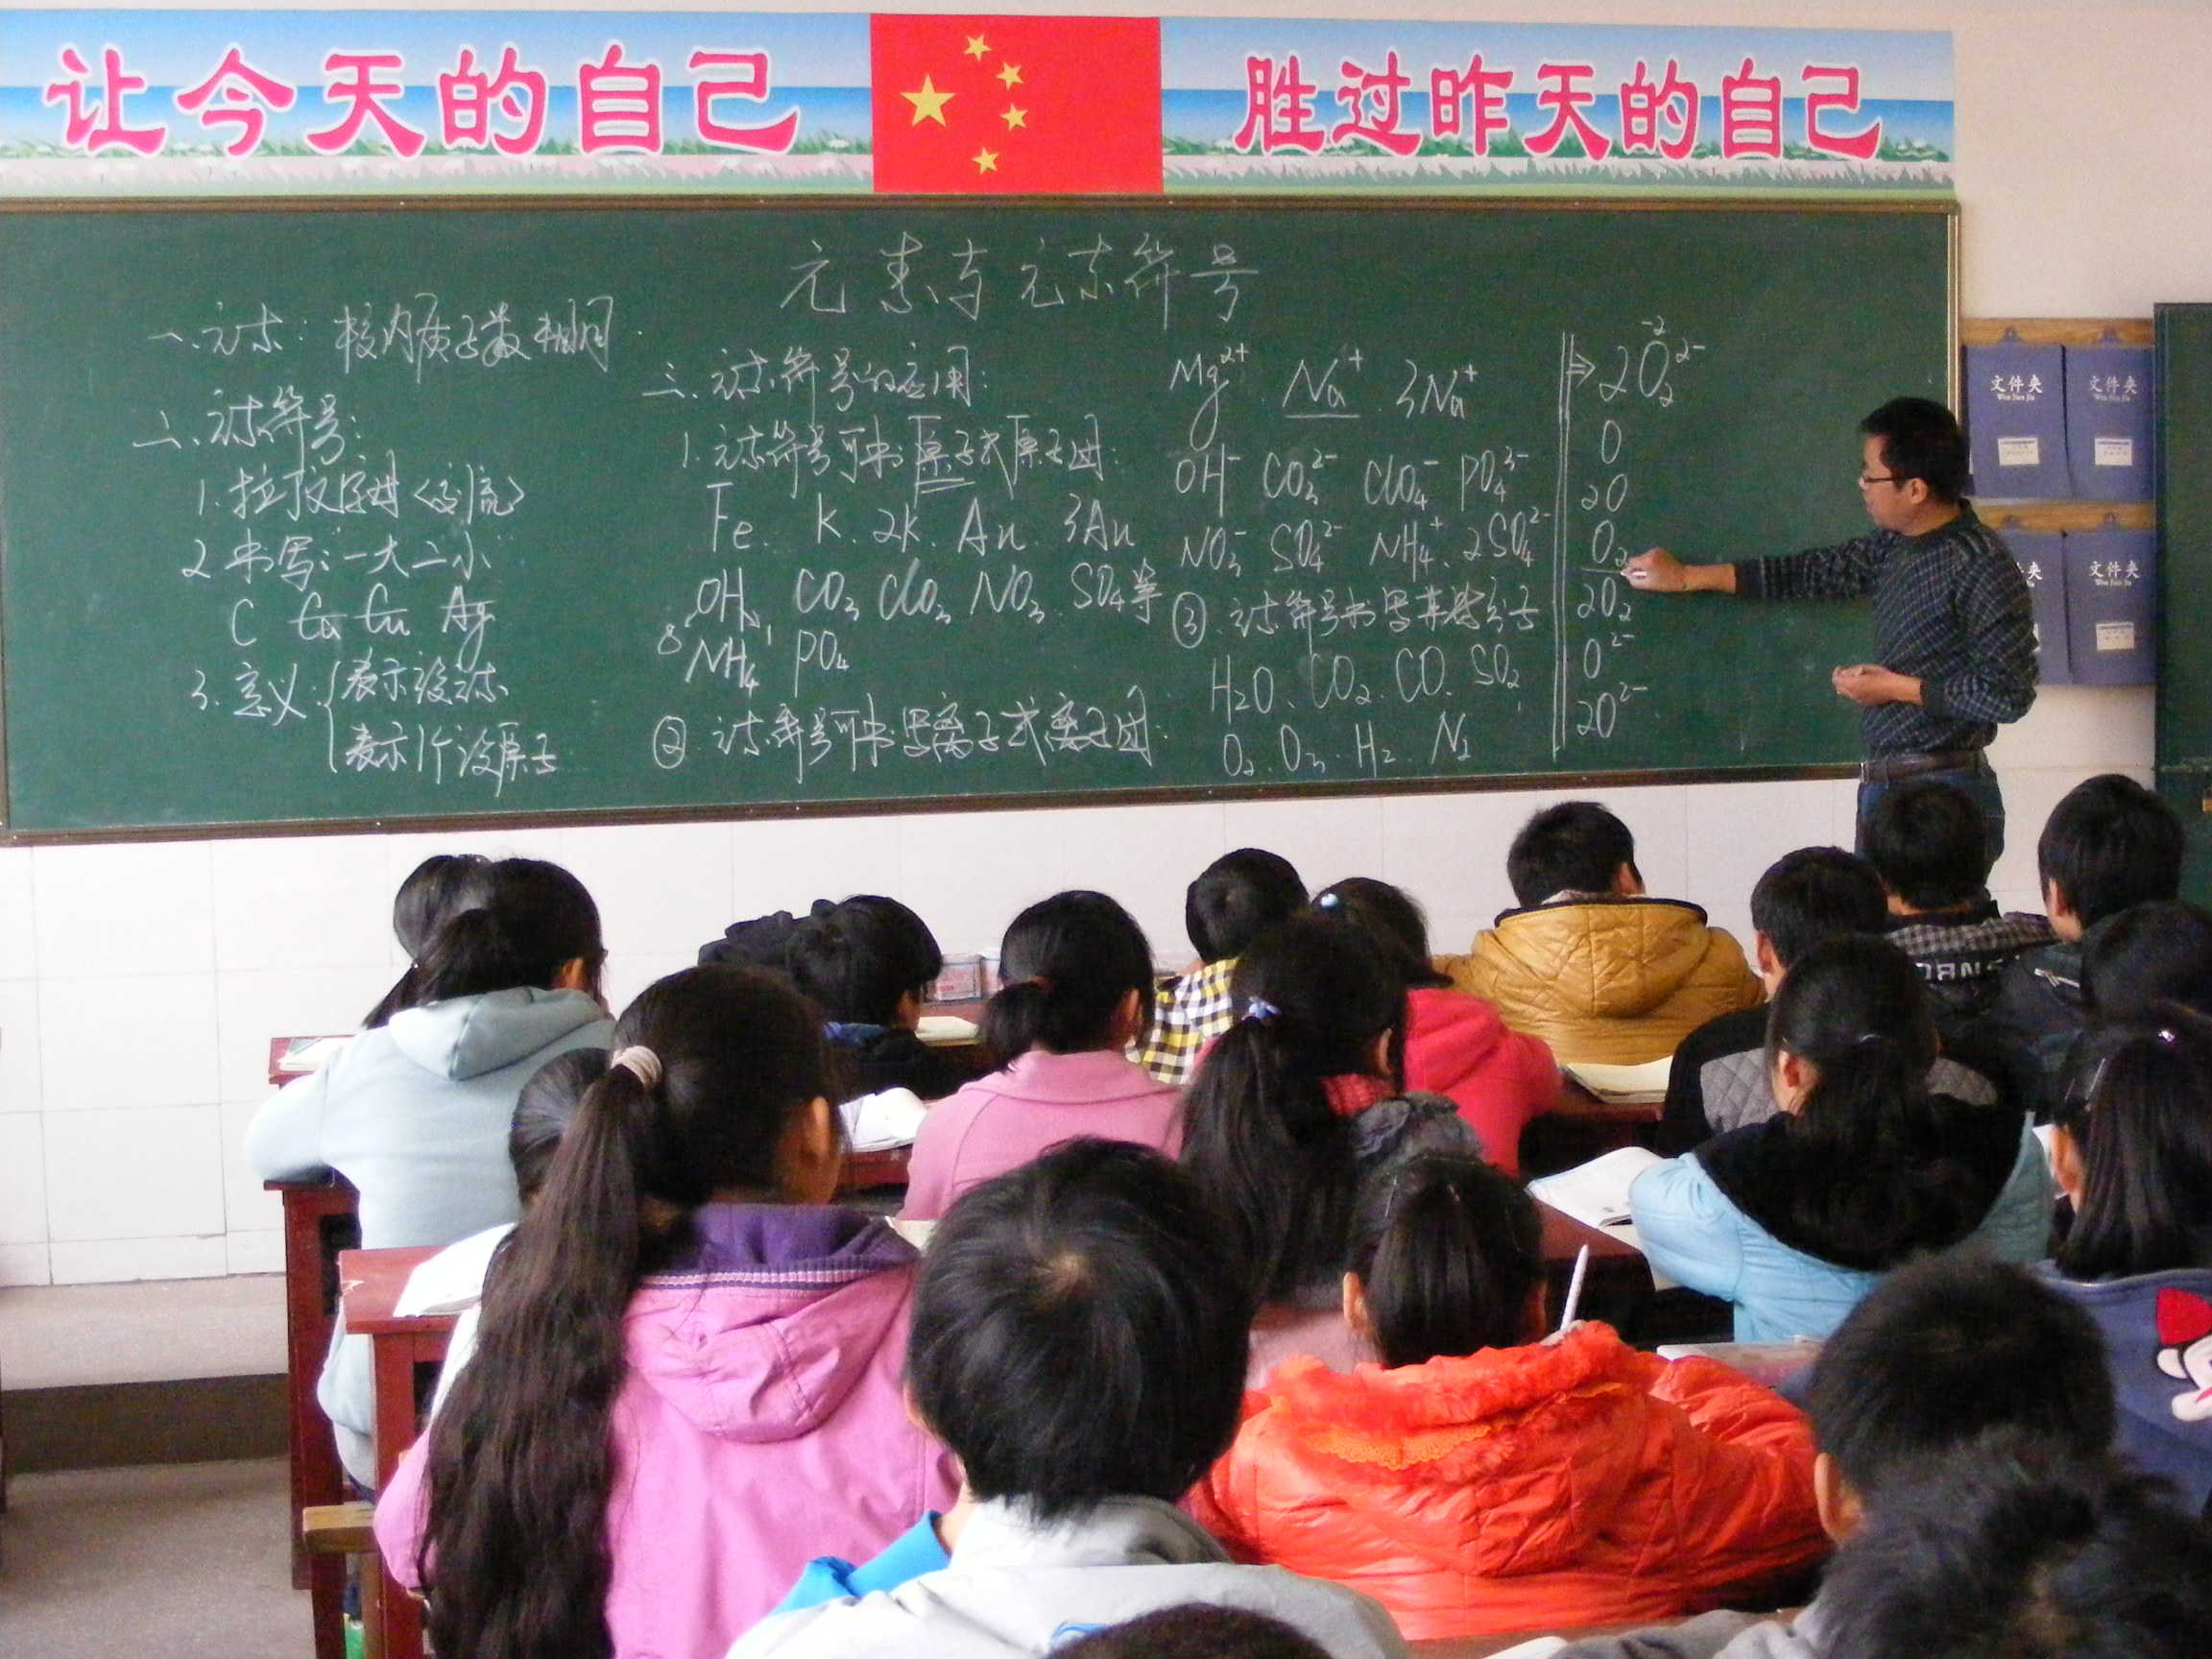 让今天的自己 胜过昨天的自己
元素与元素符号
一、元素：核内质子数相同.
二、元素符号：
1. 拉丁文字母〈交流〉
2 书写：一大二小
C Ca Cu Ag
3. 意义：
表示该元素
表示1个该原子
三、元素符号的应用：
1. 元素符号可书写原子或原子团：
Fe. K. 2K. Au. 3Au
OH、CO₃ ClO₃ NO₃ SO₄等
NH₄ PO₄
② 元素符号可书写离子或离子团.
Mg²⁺ Na⁺ 3Na⁺
OH⁻ CO₃²⁻ ClO₄⁻ PO₄³⁻
NO₃⁻ SO₄²⁻ NH₄⁺、2SO₄²⁻
③、元素符号书写某些分子
H₂O、CO₂、CO、SO₂
O₂、O₃、H₂、N₂
-2
⇒ 2O₂²⁻
O
2O
O₂
2O₂
O²⁻
2O²⁻
文件夹 文件夹
Wen Jian Jia Wen Jian Jia
文件夹
Wen Jian Jia